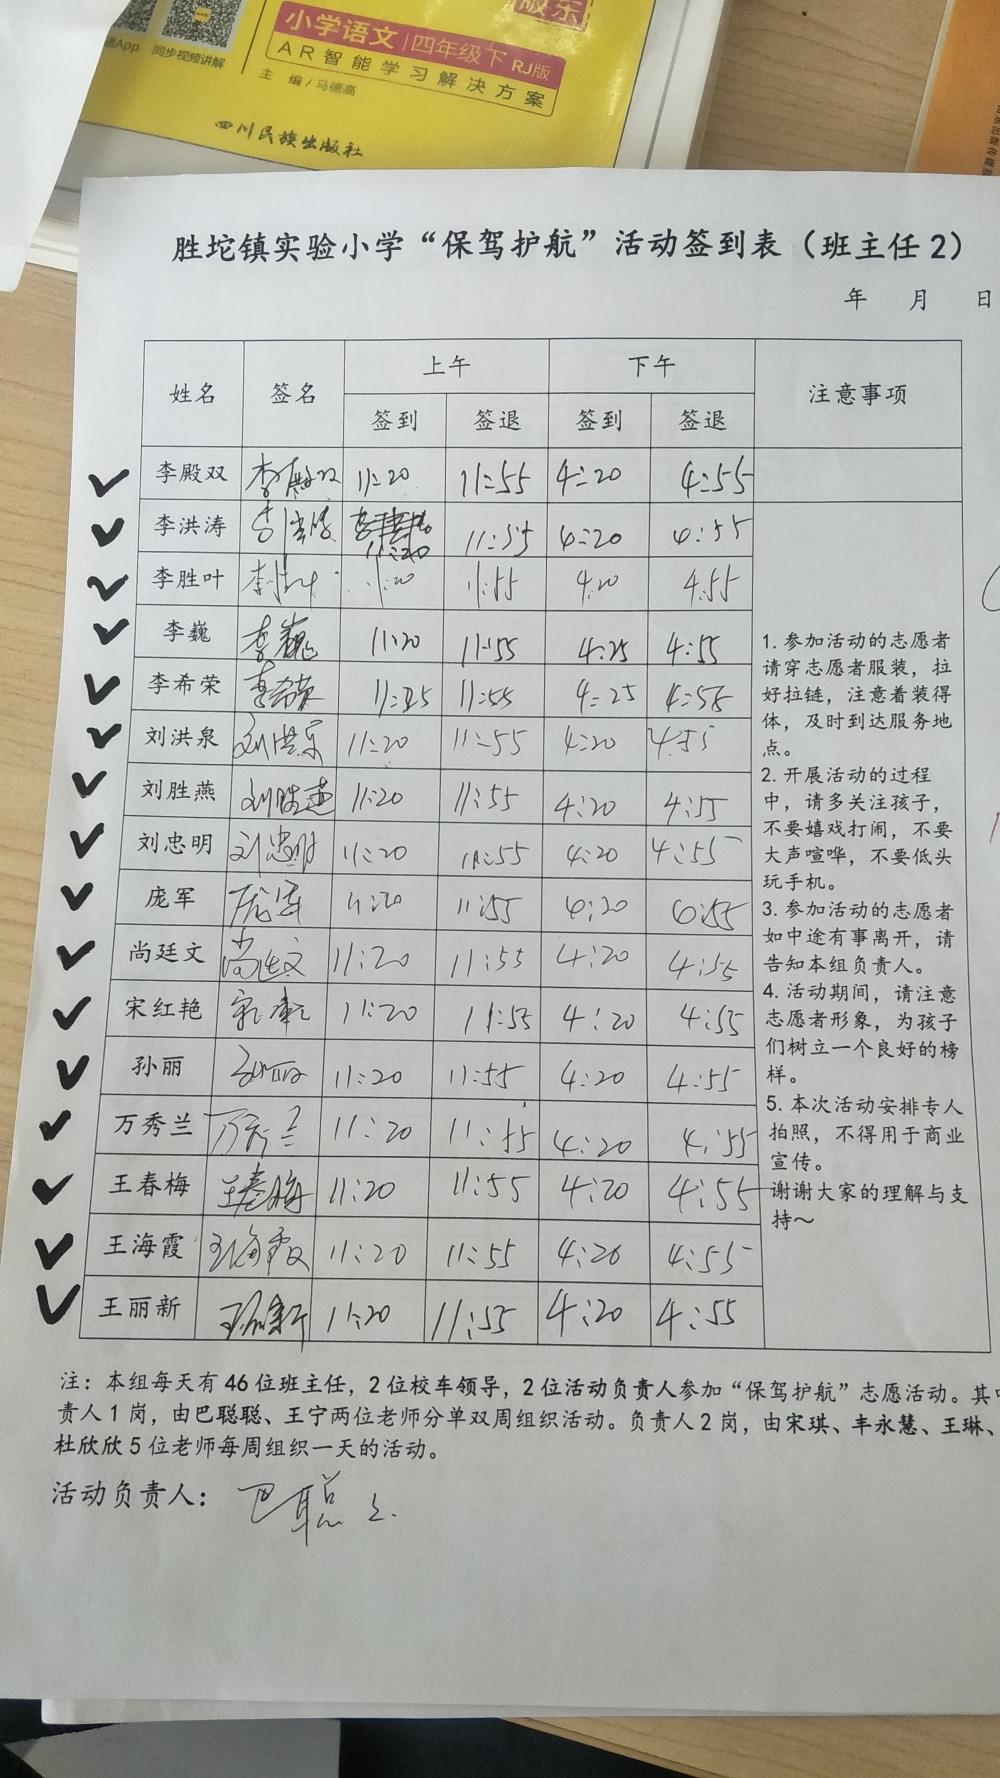 版东
小学语文 四年级下 RJ版
App 同步视频讲解
AR智能学习解决方案
主 编/马德高
四川民族出版社
胜坨镇实验小学“保驾护航”活动签到表（班主任2）
年 月 日
姓名 签名 上午 下午 注意事项
签到 签退 签到 签退
李殿双 李殿双 11:20 11:55 4:20 4:55
李洪涛 李洪涛 11:20 11:55 4:20 4:55
李胜叶 李胜叶 11:20 11:55 4:20 4:55
李巍 李巍 11:20 11:55 4:25 4:55
李希荣 李希荣 11:25 11:55 4:25 4:55
刘洪泉 刘洪泉 11:20 11:55 4:20 4:55
刘胜燕 刘胜燕 11:20 11:55 4:20 4:55
刘忠明 刘忠明 11:20 11:55 4:20 4:55
庞军 庞军 11:20 11:55 4:20 4:55
尚廷文 尚廷文 11:20 11:55 4:20 4:55
宋红艳 宋红艳 11:20 11:55 4:20 4:55
孙丽 孙丽 11:20 11:55 4:20 4:55
万秀兰 万秀兰 11:20 11:55 4:20 4:55
王春梅 王春梅 11:20 11:55 4:20 4:55
王海霞 王海霞 11:20 11:55 4:20 4:55
王丽新 王丽新 11:20 11:55 4:20 4:55
1. 参加活动的志愿者
请穿志愿者服装，拉
好拉链，注意着装得
体，及时到达服务地
点。
2. 开展活动的过程
中，请多关注孩子，
不要嬉戏打闹，不要
大声喧哗，不要低头
玩手机。
3. 参加活动的志愿者
如中途有事离开，请
告知本组负责人。
4. 活动期间，请注意
志愿者形象，为孩子
们树立一个良好的榜
样。
5. 本次活动安排专人
拍照，不得用于商业
宣传。
谢谢大家的理解与支
持～
注：本组每天有46位班主任，2位校车领导，2位活动负责人参加“保驾护航”志愿活动。其中
责人1岗，由巴聪聪、王宁两位老师分单双周组织活动。负责人2岗，由宋琪、丰永慧、王琳、
杜欣欣5位老师每周组织一天的活动。
活动负责人： 巴聪聪